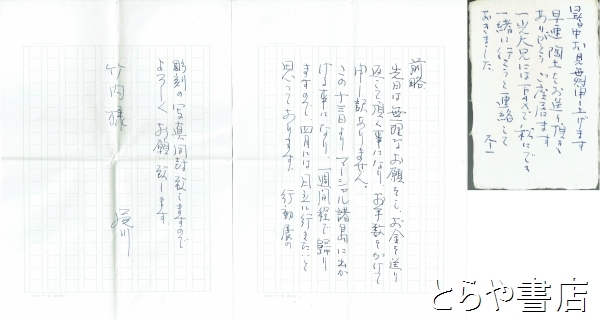 前略
先日は無理なお願をし、お金を送り
返して頂く事になり、お手数をかけて
申し訳ありません。
この十三日よりマーシャル諸島に出か
ける事になり、一週間程で帰り
ますので、四月には日立に行きたいと
思っております。 行動展の
彫刻の写真同封致しますので
よろしくお願い致します。
竹内様
暑中お見舞申し上げます
早速陶土をお送り頂き
ありがとうございます
一緒に行こうと連絡して
おきました。
とらや書店